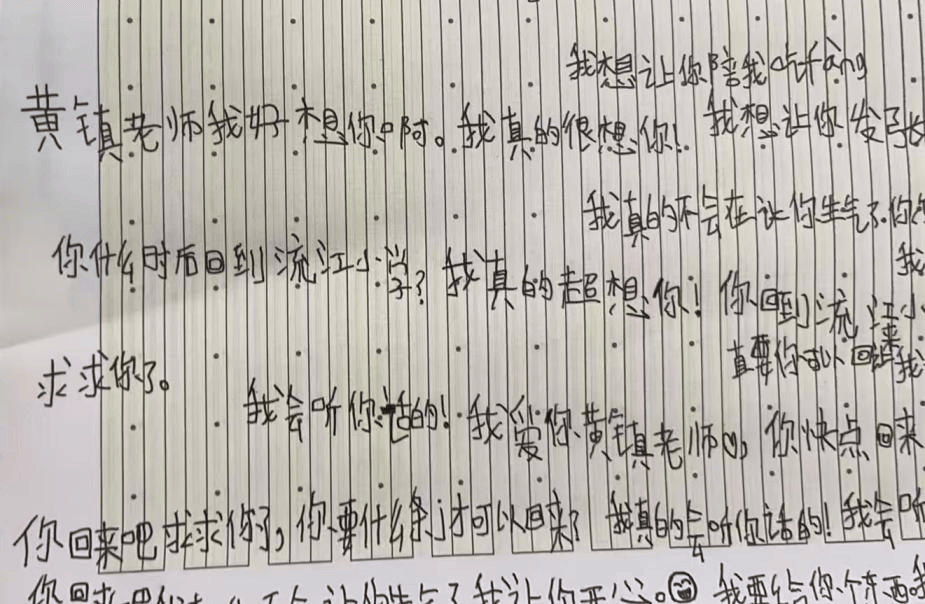 我想让你陪我吃fàng
黄镇老师我好想你啊。我真的很想你!
我想让你发
我真的不会在让你生气了.你
你什么时后回到流江小学?我真的超想你!你回到流江小
我
求求你了。
真要你可以回来
我会听你话的!我爱你黄镇老师,你快点回来
你回来吧求求你了,你要什么条才可以回来?我真的会听你话的!我会听
你回来吧 让你生气了我让你开心。我要给你个东西